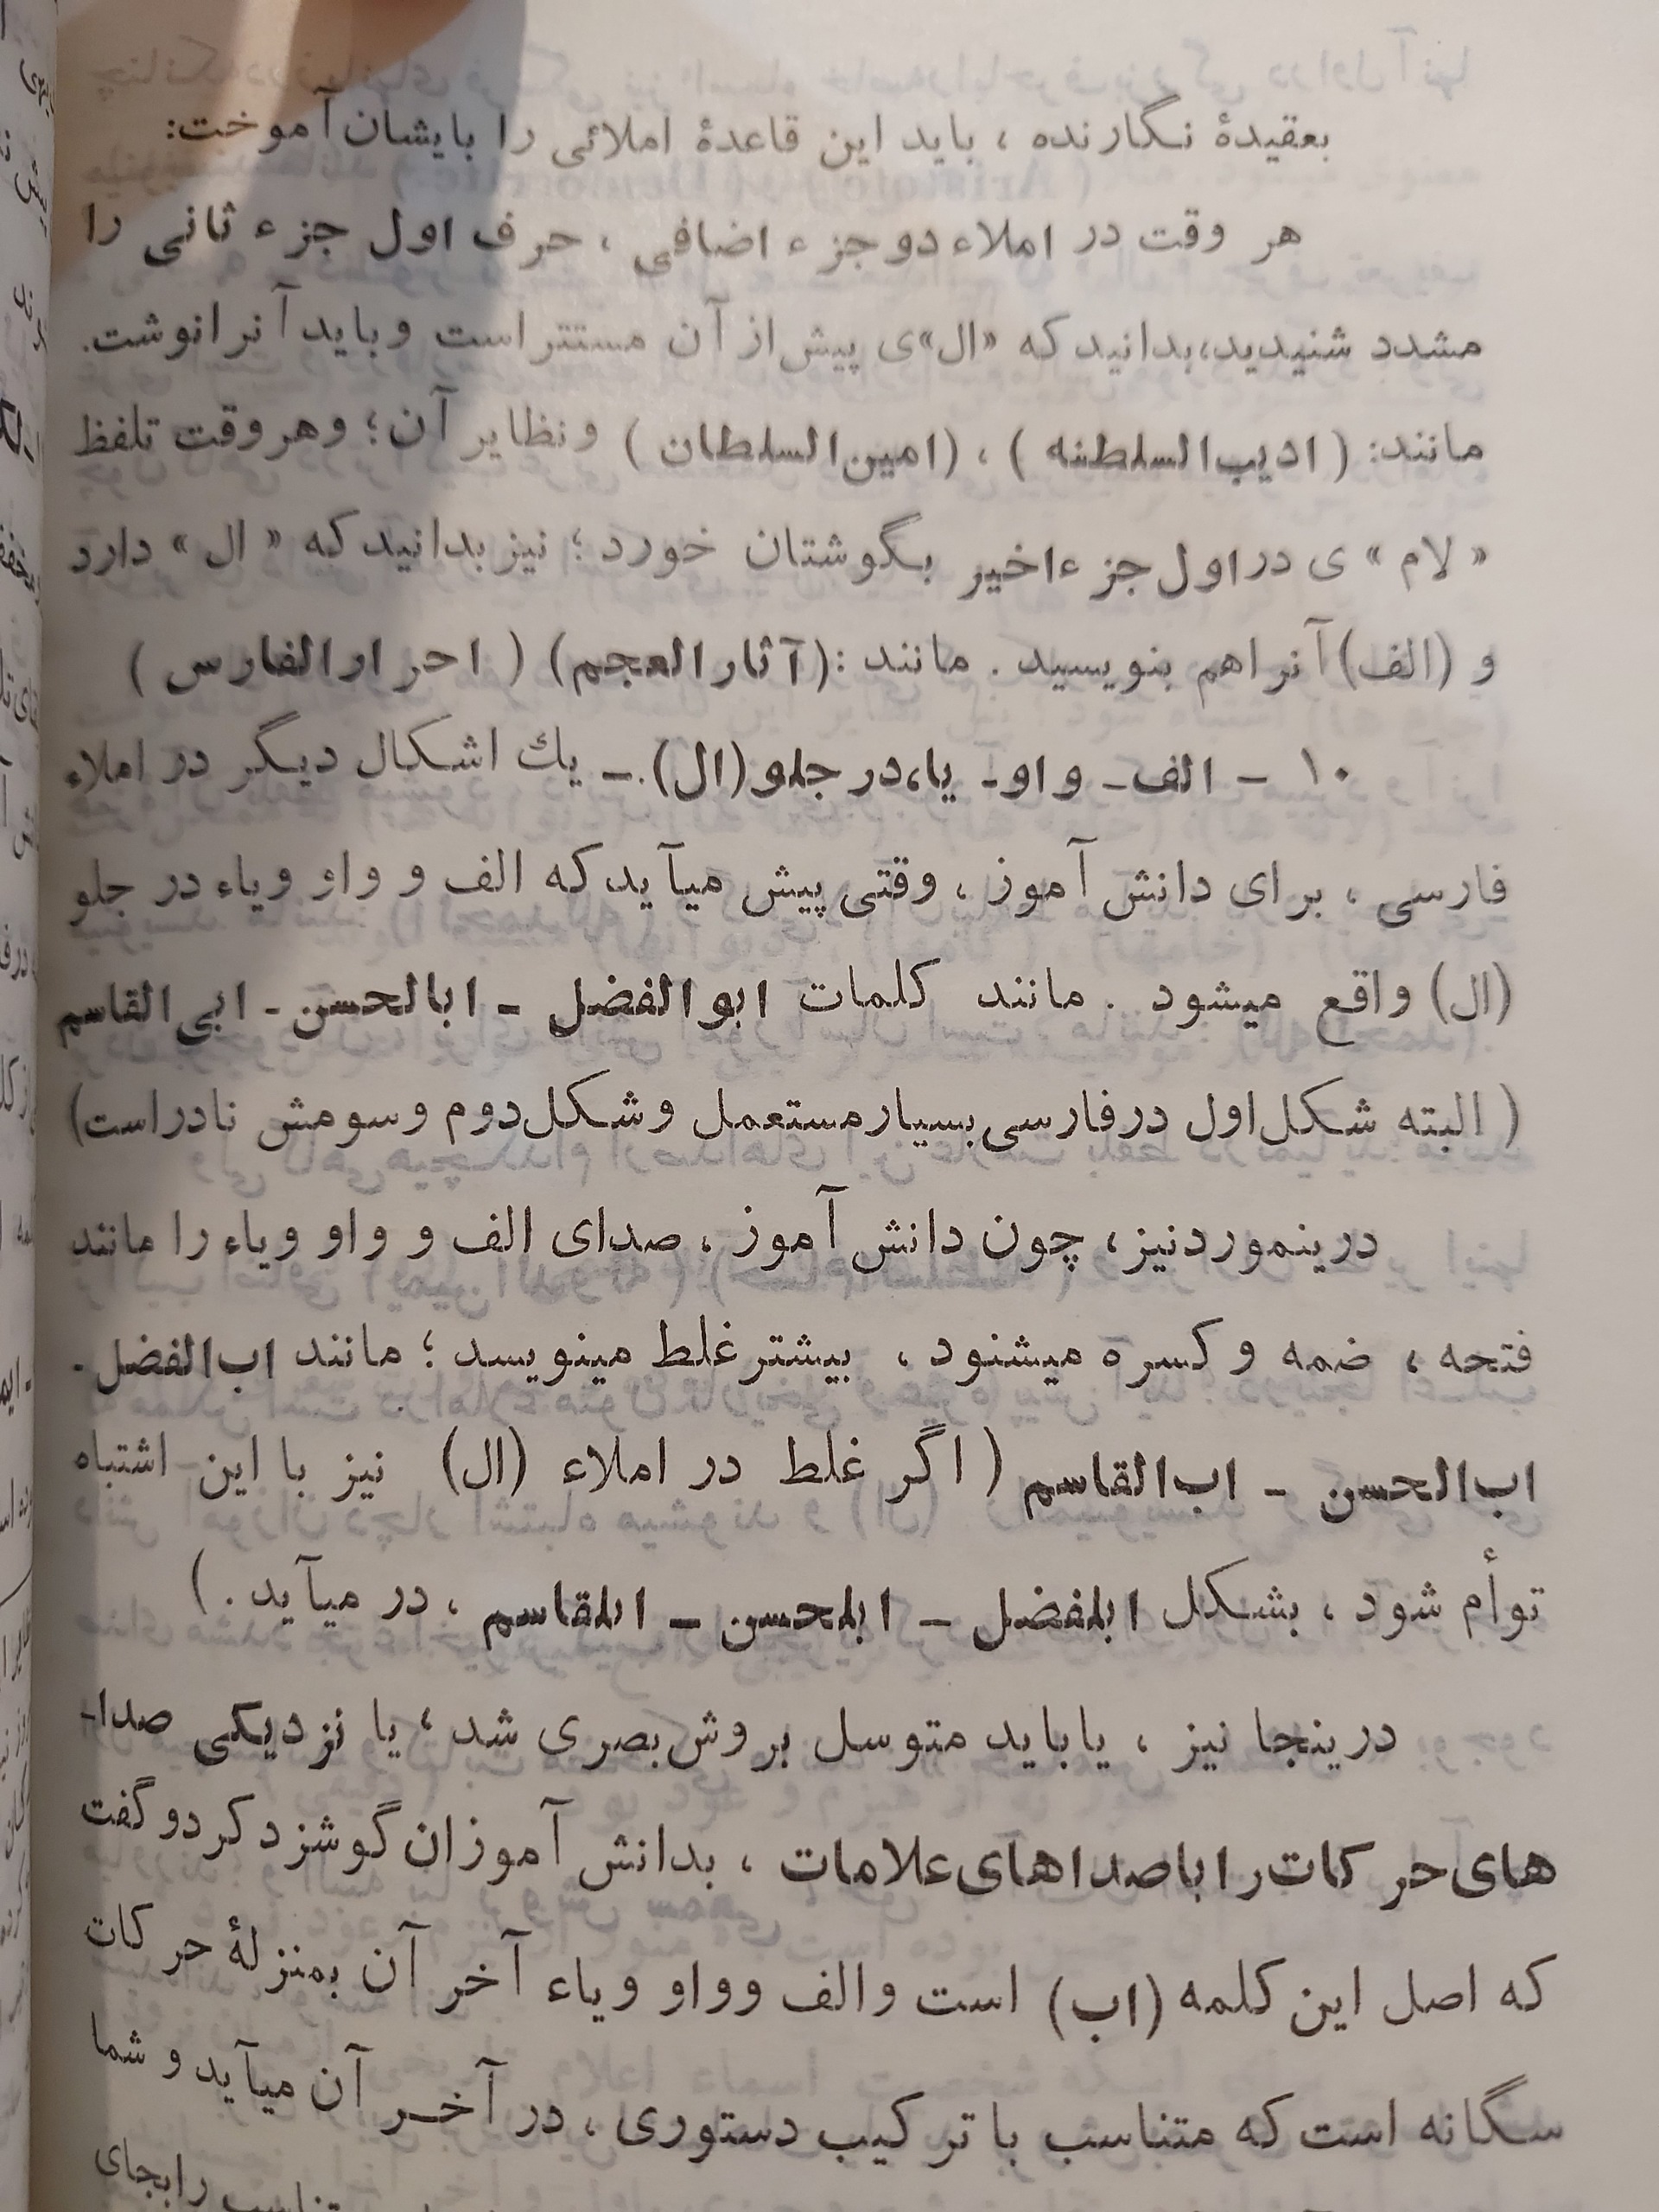 بعقیدهٔ نگارنده ، باید این قاعدهٔ املائی را بایشان آموخت:
هر وقت در املاء دو جزء اضافی ، حرف اول جزء ثانی را
مشدد شنیدید،بدانید که «ال»ی پیش از آن مستتر است و باید آنرا نوشت.
مانند: ( ادیب‌السلطنه ) ، (امین‌السلطان ) و نظایر آن؛ و هر وقت تلفظ
« لام » ی در اول جزء اخیر بگوشتان خورد ؛ نیز بدانید که « ال » دارد
و (الف) آنرا هم بنویسید . مانند :(آثارالعجم) ( احرارالفارس )
۱۰ – الف- واو- یا،در جلو (ال).– یك اشکال دیگر در املاء
فارسی ، برای دانش آموز ، وقتی پیش میآید که الف و واو و یاء در جلو
(ال) واقع میشود . مانند کلمات ابوالفضل - ابالحسن - ابی‌القاسم
( البته شکل اول در فارسی بسیار مستعمل و شکل دوم و سومش نادر است)
درینمورد نیز، چون دانش آموز ، صدای الف و واو و یاء را مانند
فتحه ، ضمه و کسره میشنود ، بیشتر غلط مینویسد ؛ مانند اب‌الفضل-
اب‌الحسن - اب‌القاسم ( اگر غلط در املاء (ال) نیز با این اشتباه
توأم شود ، بشکل ابلفضل – ابلحسن – ابلقاسم ، در میآید . )
درینجا نیز ، یا باید متوسل بروش بصری شد ؛ یا نزدیکی صدا-
های حرکات را با صداهای علامات ، بدانش آموزان گوشزد کرد و گفت
که اصل این کلمه (اب) است و الف و واو و یاء آخر آن بمنزلهٔ حرکات
سگانه است که متناسب با ترکیب دستوری ، در آخر آن میآید و شما
متناسب را بجای